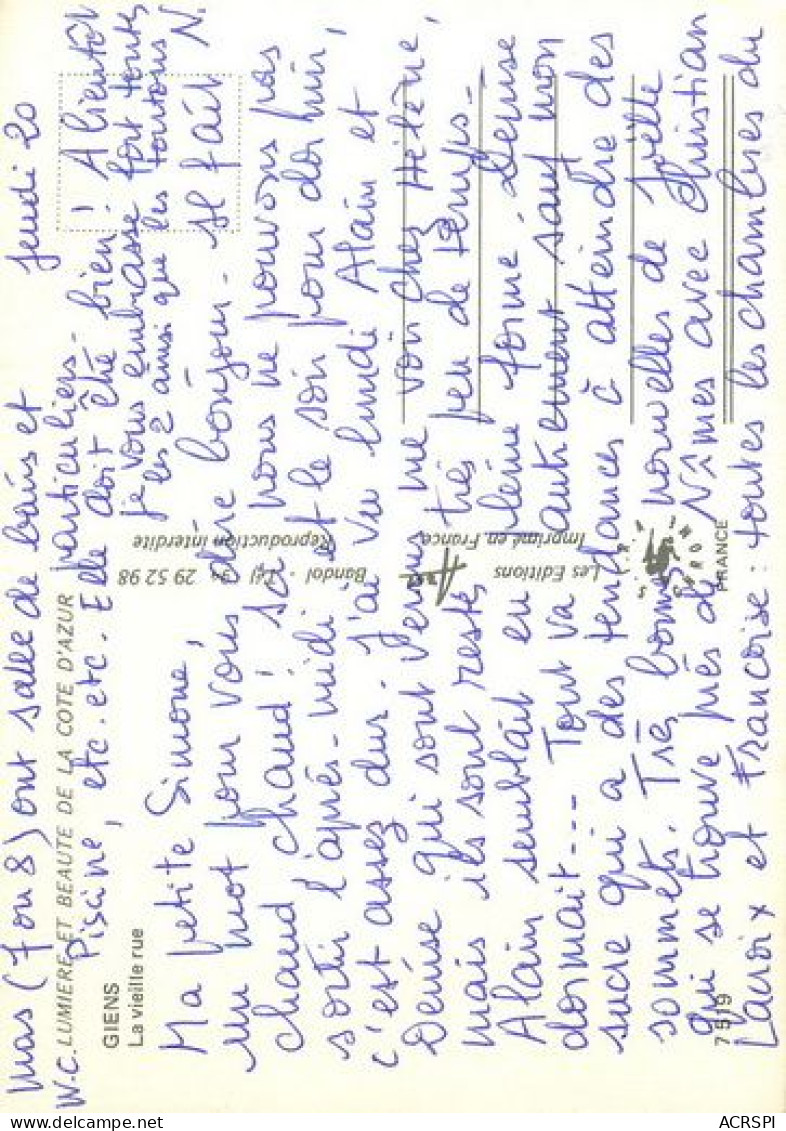 jeudi 20
Ma petite Simone,
un mot pour vous dire bonjour. Il fait
chaud chaud ! nous ne pouvons pas
sortir l'après-midi et le soir pour dormir,
c'est assez dur. J'ai vu lundi Alain et
Denise qui sont venus me voir chez Hélène,
mais ils sont restés très peu de temps.
Alain semblait en pleine forme. Denise
dormait --- Tout va autrement sauf mon
sucre qui a des tendances à atteindre des
sommets. Très bonnes nouvelles de Joëlle
qui se trouve près de Nîmes avec Christian
Lacroix et Françoise : toutes les chambres du
mas (7 ou 8) ont salle de bains et
W-C. particuliers.
Piscine, etc. etc. Elle doit être bien ! A bientôt
je vous embrasse fort toutes
les 2 ainsi que les toutous N.
LUMIERE ET BEAUTE DE LA COTE D'AZUR
GIENS
La vieille rue
Bandol - Tél. 94 29 52 98
Reproduction interdite
Les Editions
Imprimé en France
FRANCE
7519
ACRSPI